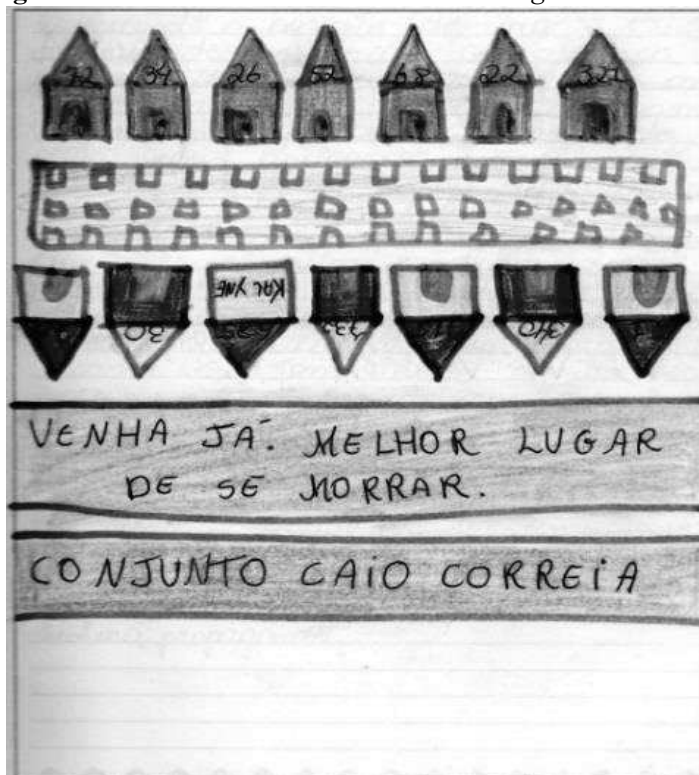 72 34 26 52 68 22 321
KALYNE
30 340
VENHA JÁ. MELHOR LUGAR
DE SE MORRAR.
CONJUNTO CAIO CORREIA